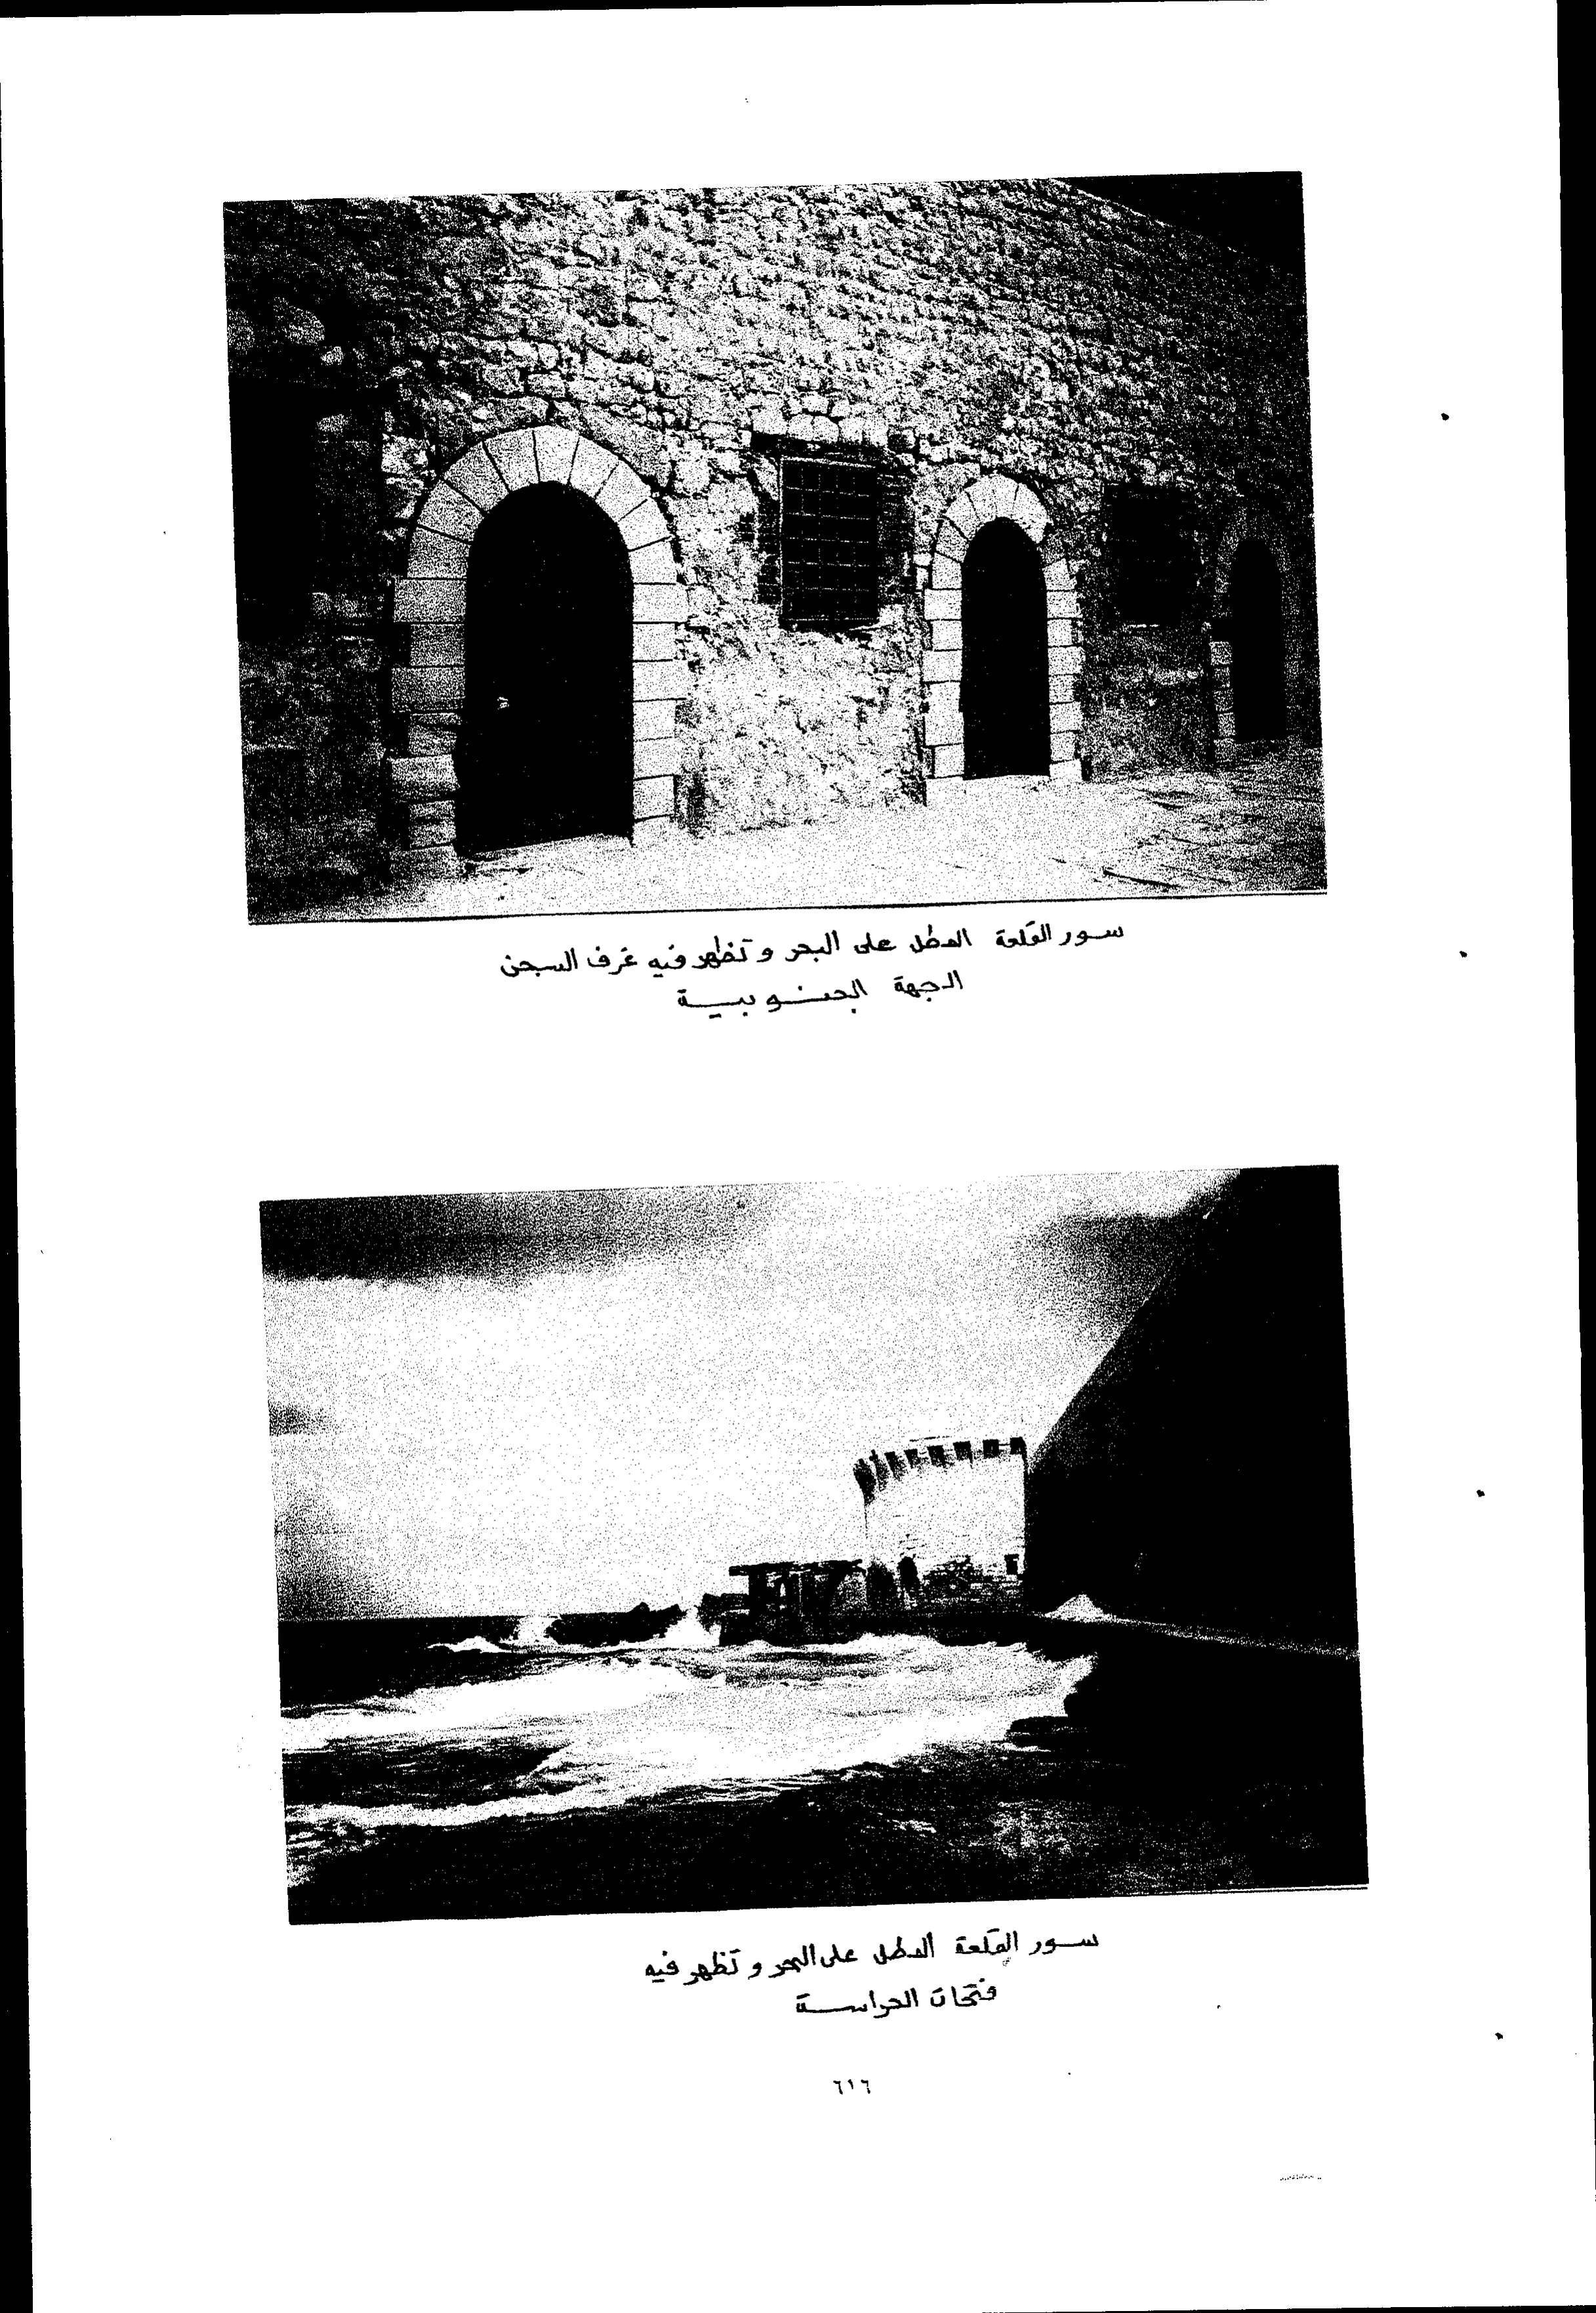 سور القلعة المطل على البحر و تظهر فيه غرف السجن
الجهة الجنوبية
سور القلعة المطل على البحر و تظهر فيه
فتحات الحراسة
٦١٦